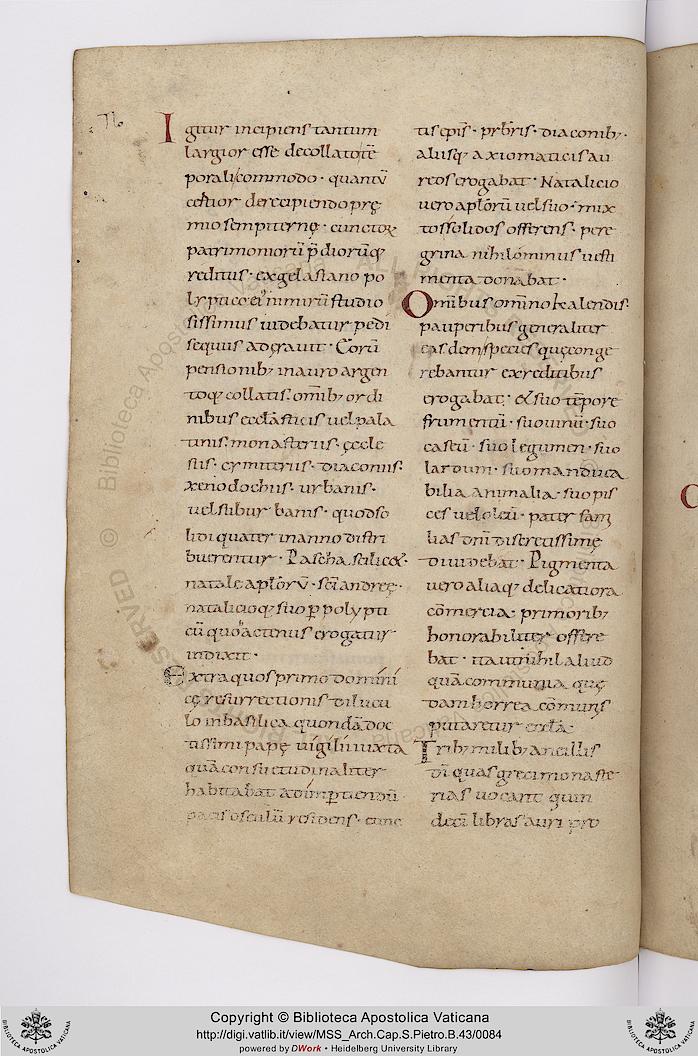 Igitur incipiens tantum
largior esse de collato tē
porali commodo · quantū
certior de recipiendo prę
mio sempiternę · cunctoꝝ
patrimoniorū p̄diorūq;
reditus · ex gelasiano po
lyptico ei nimirū studio
sissimus videbatur pedi
sequus adęravit · Eorū
pensionib; in auro argen
toq; collatis · om̄ib; ordi
nibus eccl̄asticis vel pala
tinis · monasteriis · ęccle
siis · cymiteriis · diaconiis ·
xenodochiis · urbanis ·
vel suburbanis · quod so
lidi quater in anno distri
buerentur · Pascha scilic& ·
natale apl̄orū · sc̄i andreę ·
natalicioq; suo p̱ polypti
cū quo actenus erogatur
indixit ·
Extra quos primo domini
cę resurrectionis dilucu
lo in basilica quondā doc
tissimi papę vigilii iuxta
quā consuetudinaliter
habitabat ad imp̱tiendū
pacis osculū residens · cunc
tis ep̄is · pr̄b̄ris · diaconib; ·
aliisq; axiomaticis au
reos erogabat · Natalicio
vero apl̄orū vel suo · mix
tos solidos offerens · pere
grina nihilominus vesti
menta donabat ·
Omībus omnino kalendis ·
pauperibus generaliter
eas dem species quę conge
rebantur ex reditibus
erogabat · & suo tēpore
frumentū · suo vinū · suo
caseū · suo legumen · suo
lardum · suo manduca
bilia animalia · suo pis
ces vel oleū · pater fam̄
lias dn̄i discretissimę
dividebat · Pigmenta
vero aliaq; delicatiora
cōmercia · primorib;
honorabiliter offere
bat · ita ut nihil aliud
quā communia quę
dam horrea cōmunis
putaretur eccl̄a ·
Trib; milib; ancillis
dī quas greci monaste
rias vocant quin
decī libras auri pro
Copyright © Biblioteca Apostolica Vaticana
http://digi.vatlib.it/view/MSS_Arch.Cap.S.Pietro.B.43/0084
powered by DWork • Heidelberg University Library